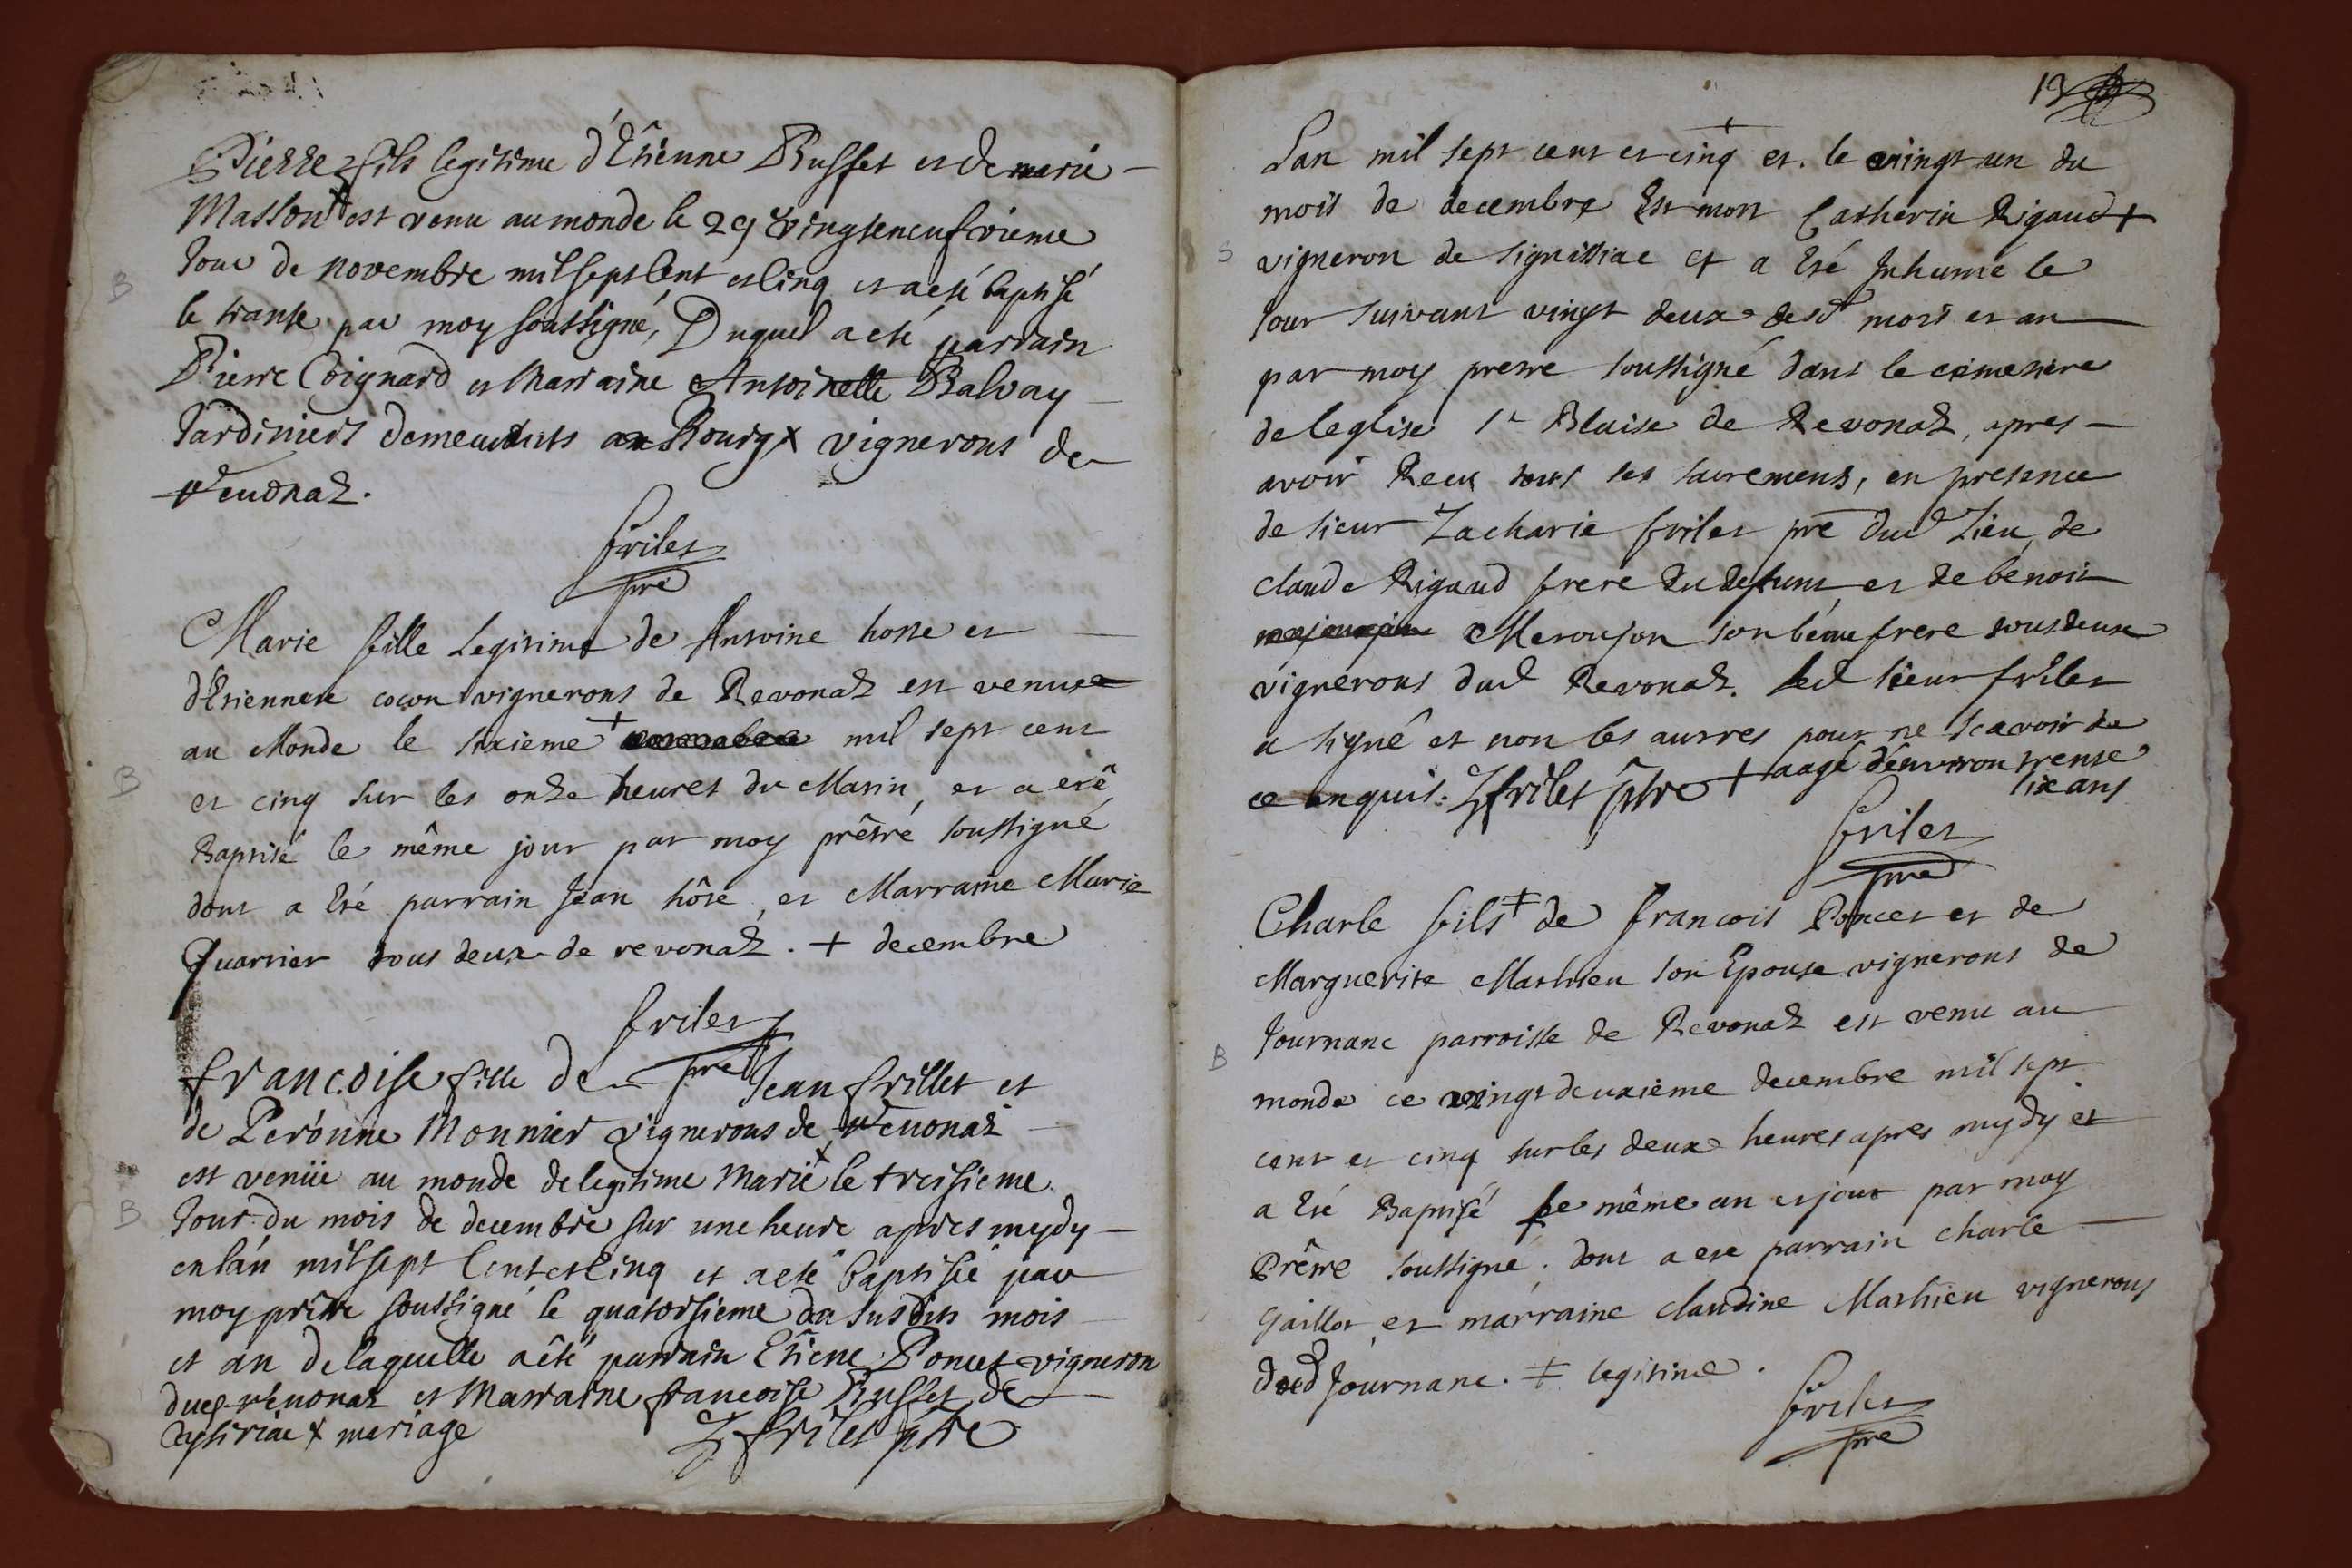 Pierre fils legitime d'Etienne Buffet et de marie
Masson + est venu au monde le 29 vingteneufvieme
Jour de novembre mil sept Cent et Cinq et a eté baptisé
le trante par moy soussigné, Duquel a eté parrain
Pierre Coignard et Marraine Antoinette Balvay
Jardiniers demeurants a Bourg x vignerons de
revonaz.
frilet
pre
Marie fille Legitime de Antoine hoste et
d'Etiennete cocon vignerons de Revonaz est venue
au Monde le sixieme + mil sept cent
et cinq sur les onze heures du Matin, et a eté
Baptisé le même jour par moy prêtre soussigné
dont a Eté parrain Jean hôte, et Marraine Marie
Quartier tous deux de revonaz. + decembre
frilet
pre
francoise fille de Jean frillet et
de Peronne Monnier vignerons de revonaz
est venüe au monde de legitime Marié x le treisieme
Jour du mois de decembre sur une heure apres mydy
en lan mil sept Cent et Cinq et a eté baptisée par
moy prêtre soussigné le quatorsieme du susdits mois
et an de laquelle a êté parrain Etiene Poncet vigneron
dud revonaz et Marraine francoise Buffet de
Ceysiriac x mariage
Z frilet ptre
13
Lan mil sept cent et cinq et le vingt un du
mois de decembre Est mort Catherin Rigaud +
vigneron de signissiac et a Eté Inhumé le
Jour suivant vingt deux desd mois et an
par moy pretre soussigné dans le cimetiere
de leglise St Blaise de Revonaz, apres
avoir Receu tous ses sacremens, en presence
de sieur Zacharie frilet pre dud Lieu, de
claude Rigaud frere du defunt et de benoit
Meroujon son beau frere tous deux
vignerons dud Revonaz. led sieur frilet
a signé et non les autres pour ne scavoir de
ce enquis. Z frilet ptre + aagé d'environ trente
six ans
frilet
pre
Charle fils ‡ de francois Poncet et de
Marguerite Mathieu son Epouse vignerons de
Journanc parroisse de Revonaz est venu au
monde ce vingt deuxieme decembre mil sept
cent et cinq sur les deux heures apres mydy et
a Eté Baptisé le même an et jour par moy
Prêtre soussigné. dont a ete parrain charle
Gaillot et marraine claudine Mathieu vignerons
dud Journanc. ‡ legitime.
frilet
pre